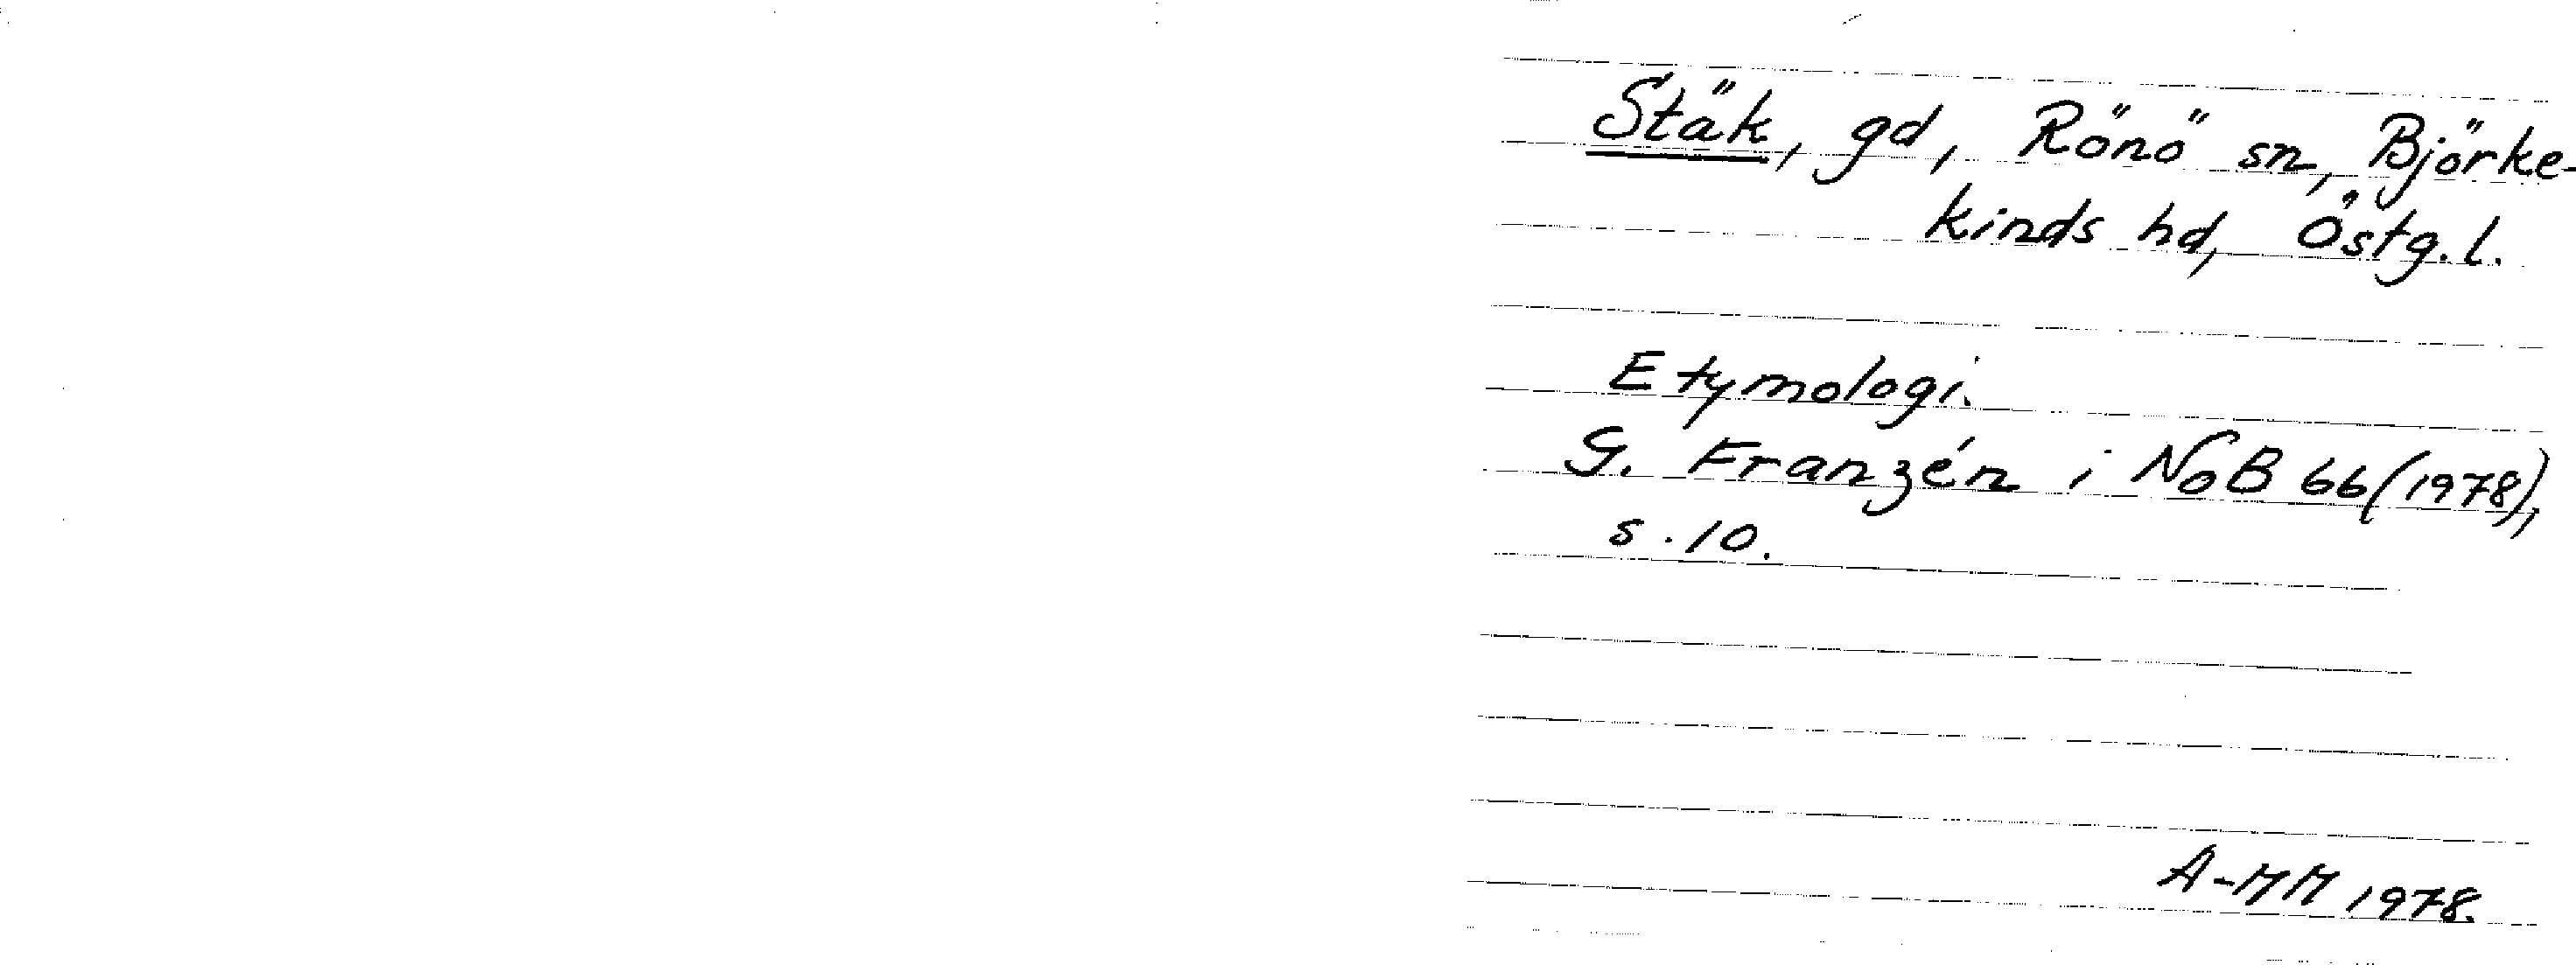 Stäk, gd, Rönö sn, Björke-
kinds hd, Östg.l.
Etymologi.
G. Franzén i NoB 66 (1978),
s. 10.
A-MM 1978.